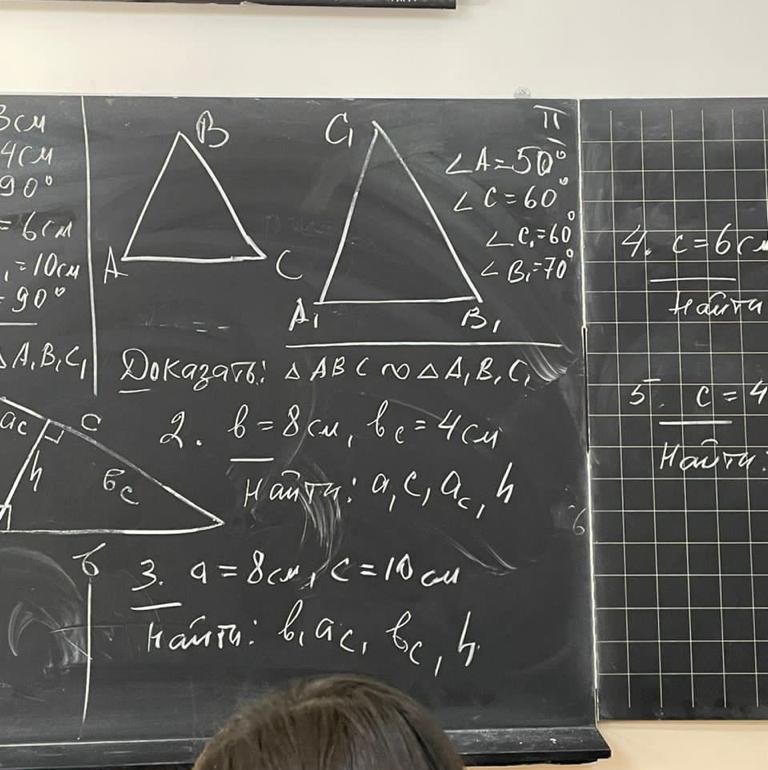 3см
4см
90°
= 6см
₁ = 10см
= 90°
△ A₁B₁C₁
B
A
C
C₁
A₁
B₁
II
∠A=50°
∠C=60°
∠C₁=60°
∠B₁=70°
Доказать: △ABC ∾ △A₁B₁C₁
aс
c
h
bс
b
2. b=8см, bс=4см
Найти: a, c, aс, h
3. a=8см, c=10см
Найти: b, aс, bс, h
4. c=6см
Найти
5. c=4
Найти: